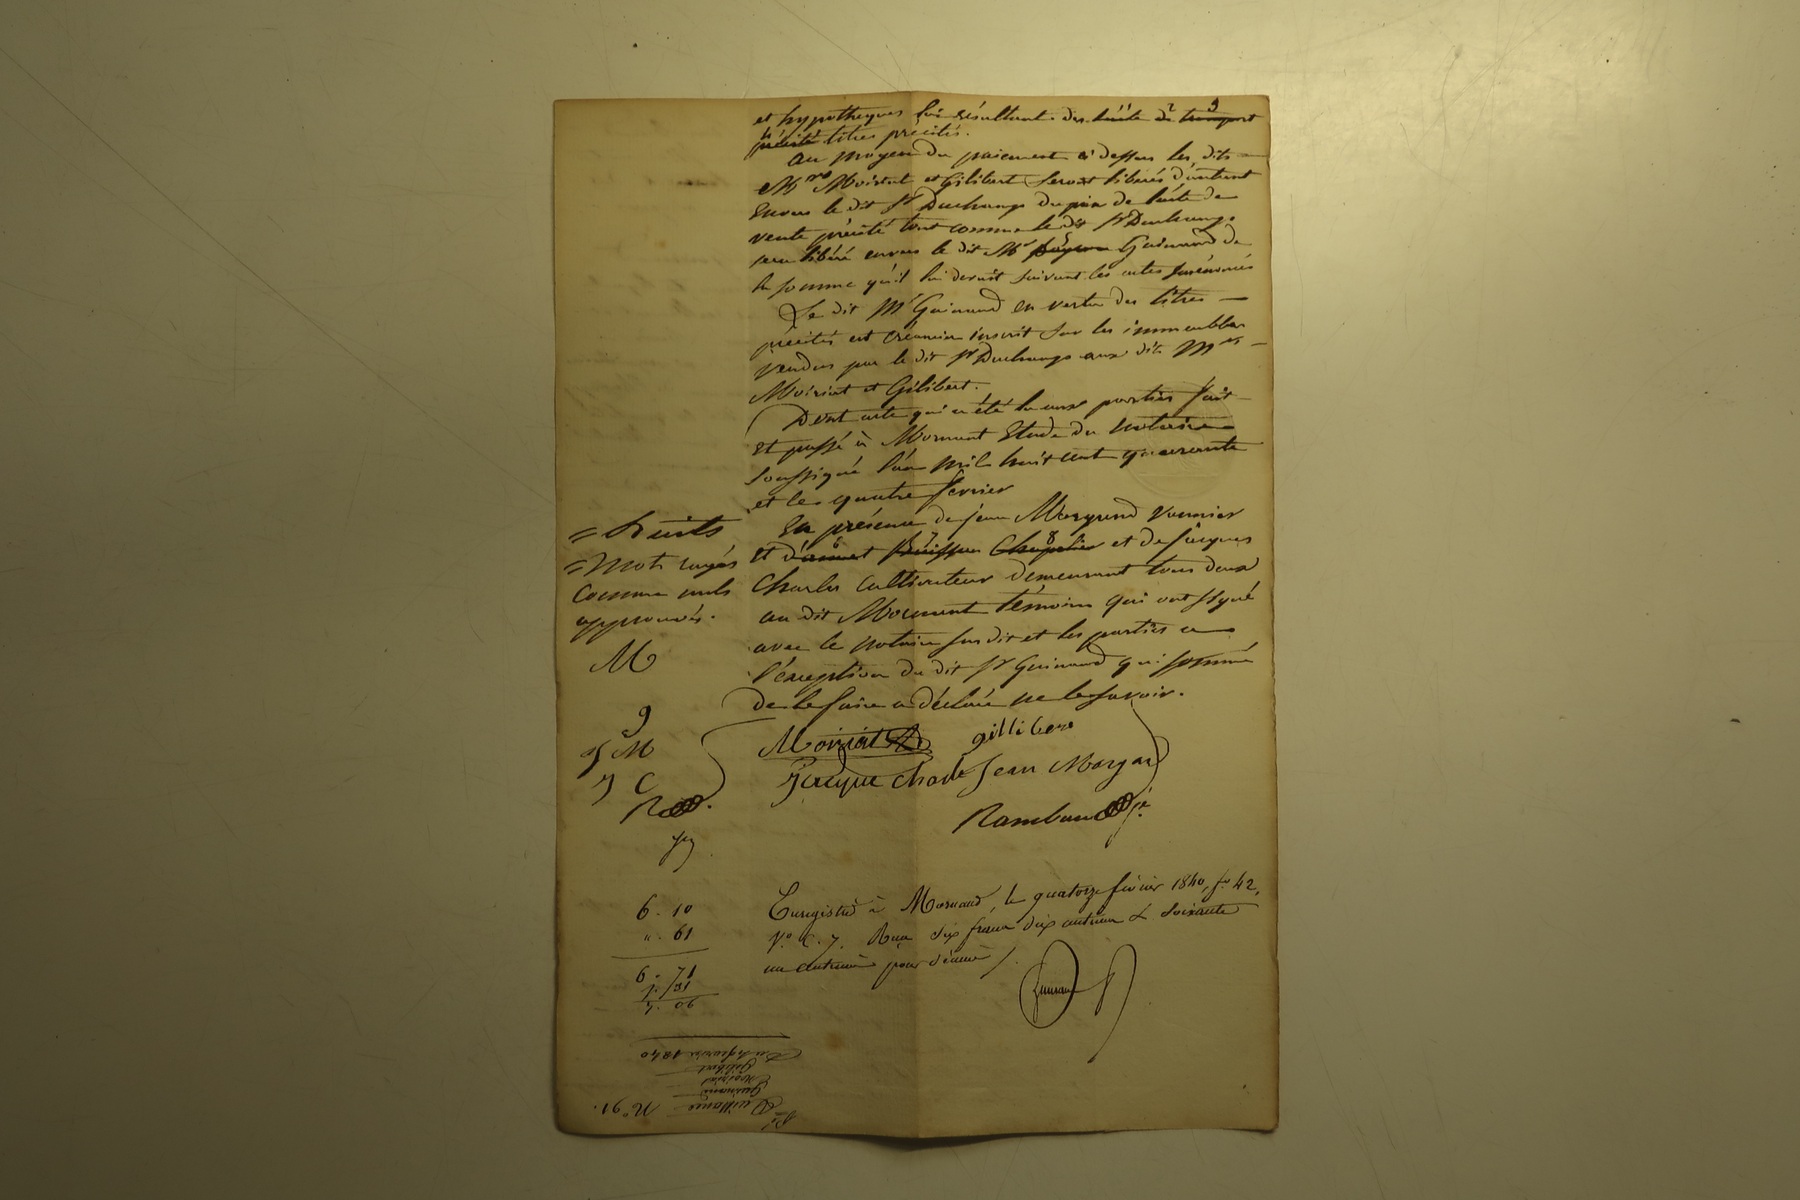 et hypothèques lui résultant des traité de transport
précité titres précités.
Au moyen du paiement ci dessus les dits
Mrs Moiriat et Gilibert seront libérés d'autant
envers le dit Sr Duchamp du prix de l'acte de
vente précité tout comme le dit Sr Duchamp
sera libéré envers le dit Mr Guinard de
la somme qu'il lui devait suivant les actes
Le dit Mr Guinard en vertu des titres
précités est créancier inscrit sur les immeubles
vendus par le dit Sr Duchamp aux dits Mrs
Moiriat et Gilibert.
Dont acte qui a été lu aux parties fait
et passé à Mornant Etude du notaire
soussigné l'an mil huit cent quarante
et le quatre février
En présence de Jean Vannier
et et de Jacques
Charles cultivateur demeurant tous deux
au dit Mornant témoins qui ont signé
avec le notaire susdit et les parties à
l'exception du dit Sr Guinard qui sommé
de le faire a déclaré ne le savoir.
= huits
= mots rayés
comme nuls
approuvés.
M
g
J M
J C
R
Moiriat gillibert
Jacque Charle Jean
Rambaud
6. 10
" 61
6. 71
Enregistré à Mornand, le quatorze février 1840, fo 42,
Vo C. 7. Reçu six francs dix centimes & soixante
un centimes pour décime
1840
Gilibert
Moiriat
Guinard
Quittance No 91.